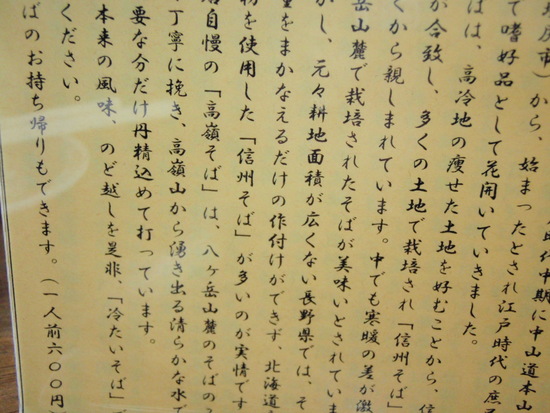 代中期に中山道本山
尻市)から、始まったとされ江戸時代の庶
て嗜好品として花開いていきました。
ばは、高冷地の痩せた土地を好むことから、信
が合致し、多くの土地で栽培され「信州そば」
くから親しまれています。中でも寒暖の差が激
岳山麓で栽培されたそばが美味いとされていま
かし、元々耕地面積が広くない長野県では、そ
量をまかなえるだけの作付けができず、北海道
粉を使用した「信州そば」が多いのが実情です
店自慢の「高嶺そば」は、八ヶ岳山麓のそばのみ
丁寧に挽き、高嶺山から湧き出る清らかな水で
要な分だけ丹精込めて打っています。
本来の風味、のど越しを是非、「冷たいそば」で
ください。
ばのお持ち帰りもできます。(一人前六〇〇円